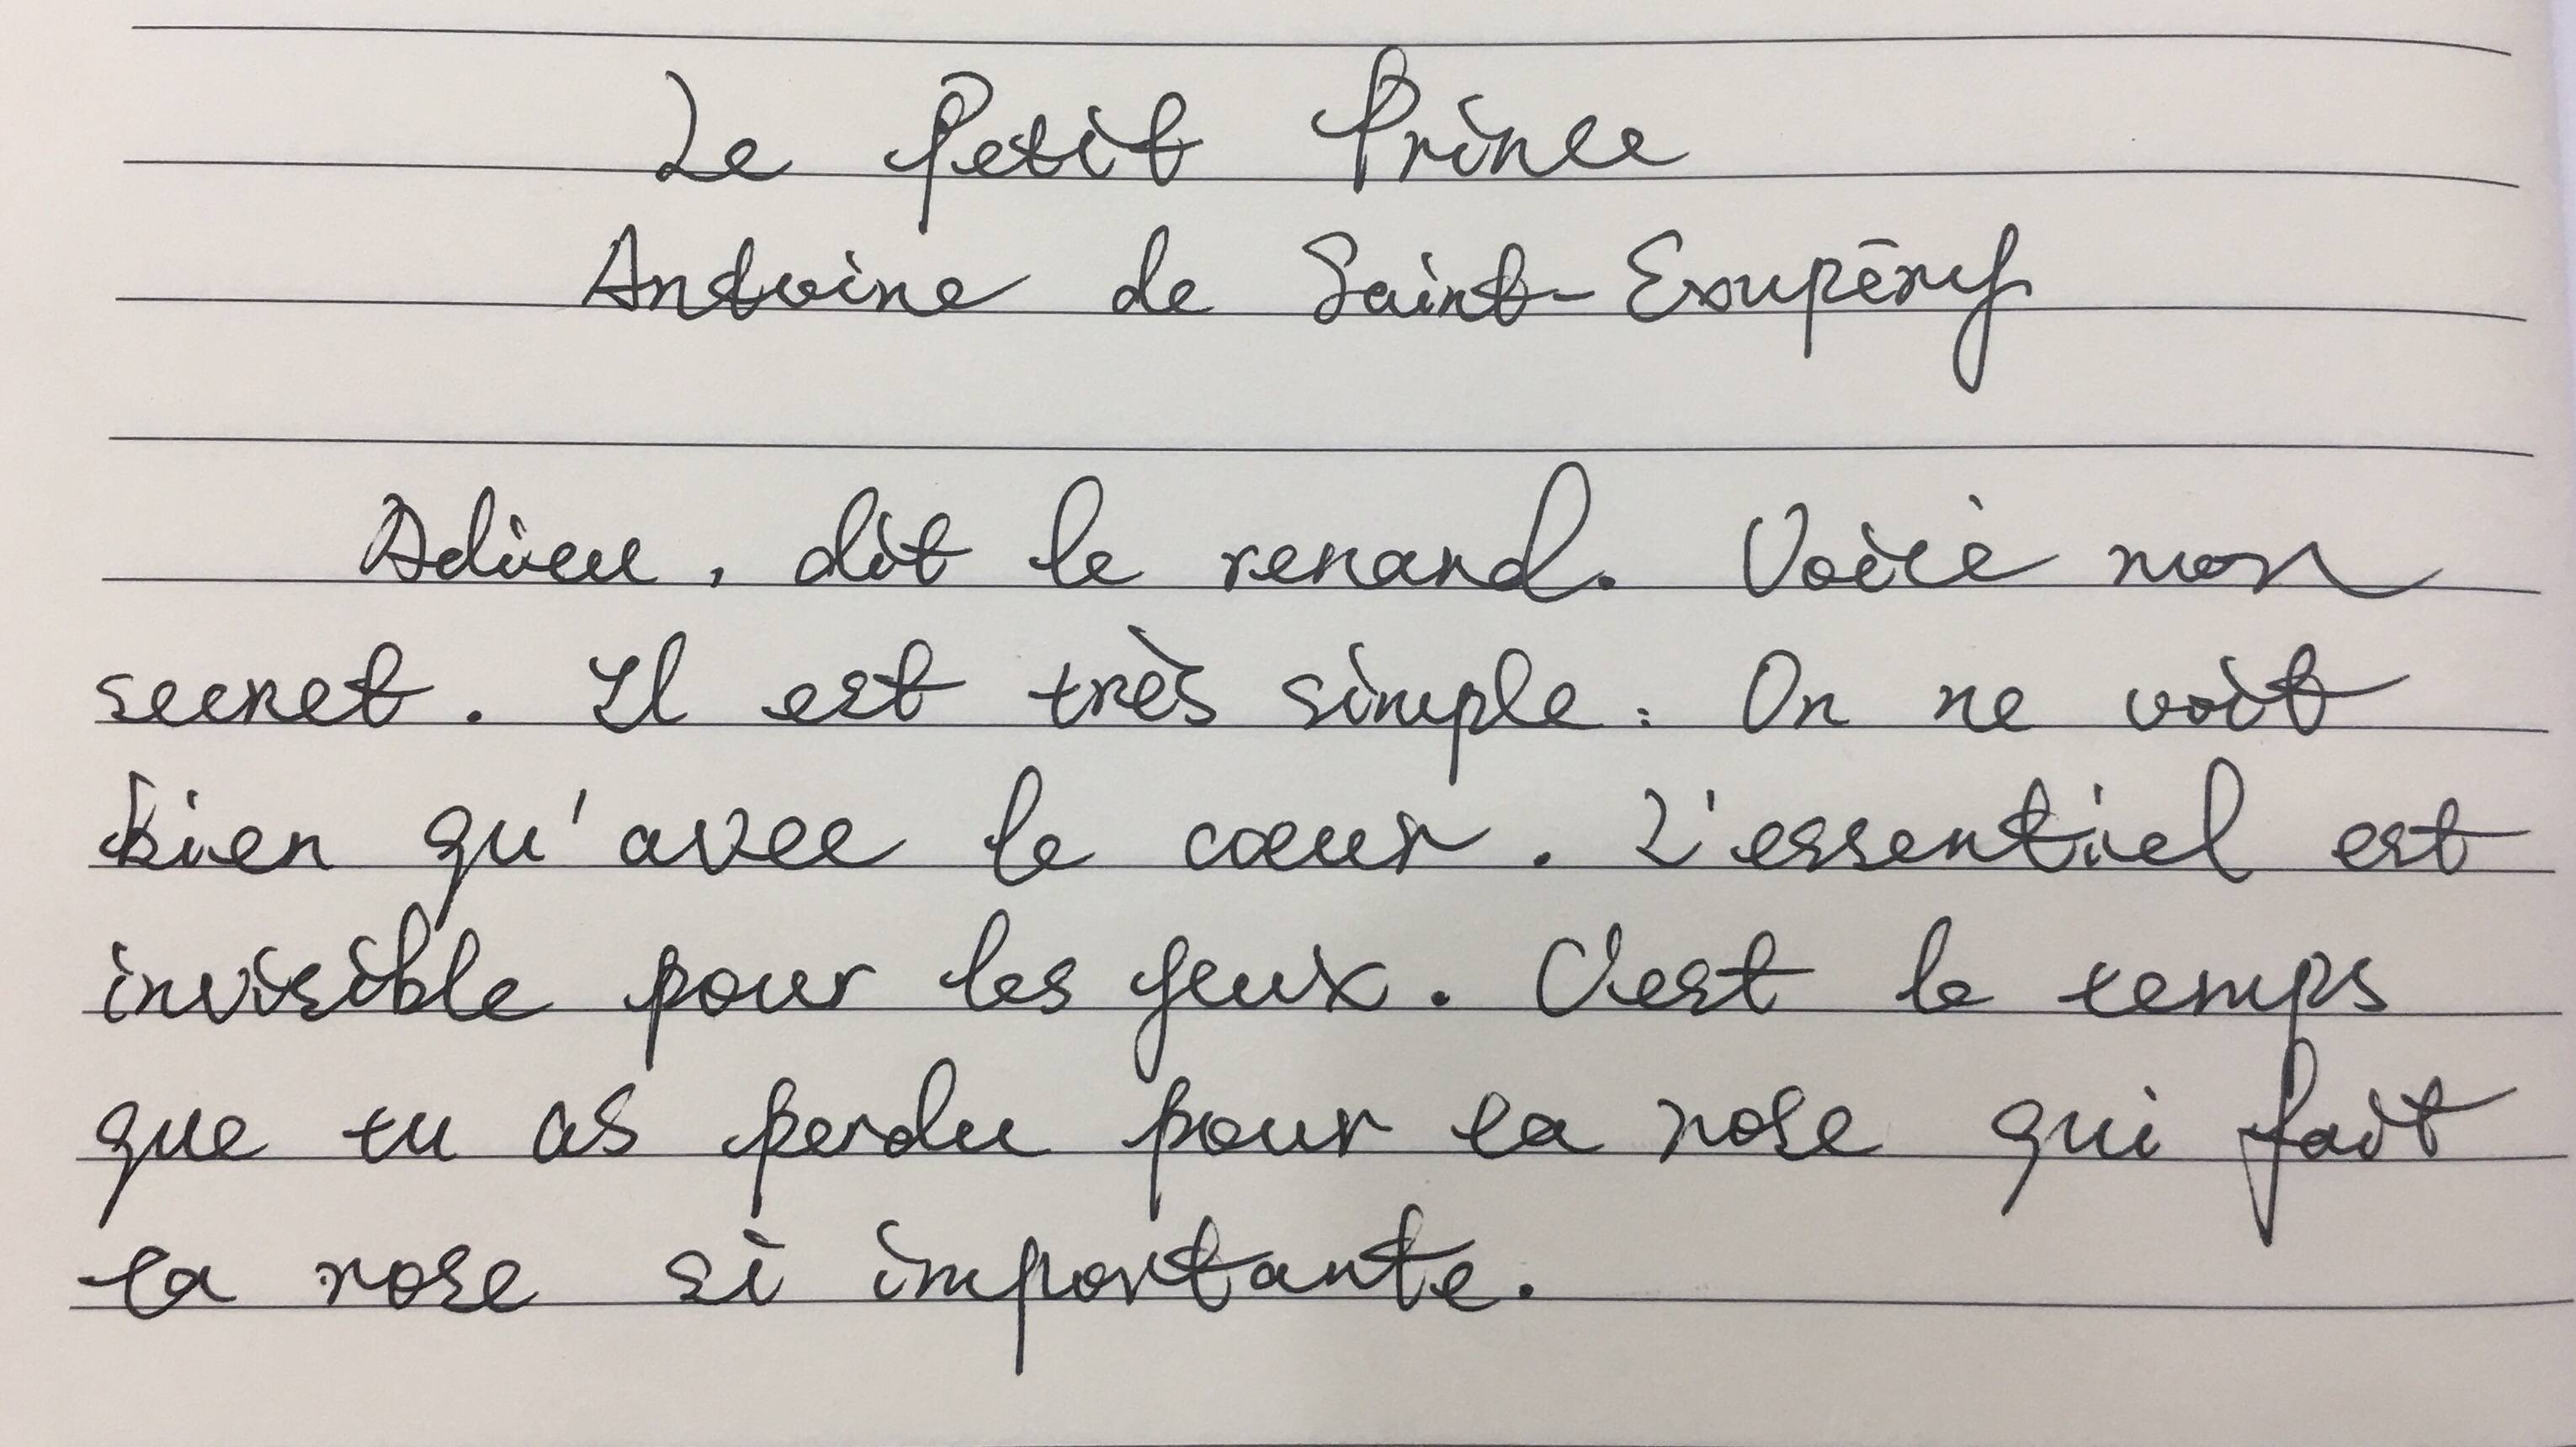 Le Petit Prince
Antoine de Saint-Exupéry
Adieu, dit le renard. Voici mon
secret. Il est très simple: On ne voit
bien qu'avec le cœur. L'essentiel est
invisible pour les yeux. C'est le temps
que tu as perdu pour ta rose qui fait
ta rose si importante.